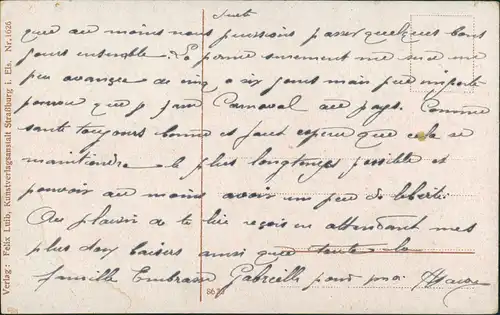 Suite
que au moins nous puissions passer quelques bons
jours ensemble. La permé surement me sera un
peu avancée de cinq a six jours mais peu importe
pourvu que j Carnaval au pays. Comme
santé toujours bonne et faut espérer que cela se
maintiendra le plus longtemps possible et
pouvoir au moins avoir un peu de liberté.
Au plaisir de te lire reçois en attendant mes
plus doux baisers ainsi que toute la
famille Embrasse Gabrielle pour moi
Verlag: Felix Luib, Kunstverlagsanstalt Straßburg i. Els. Nr. 1626